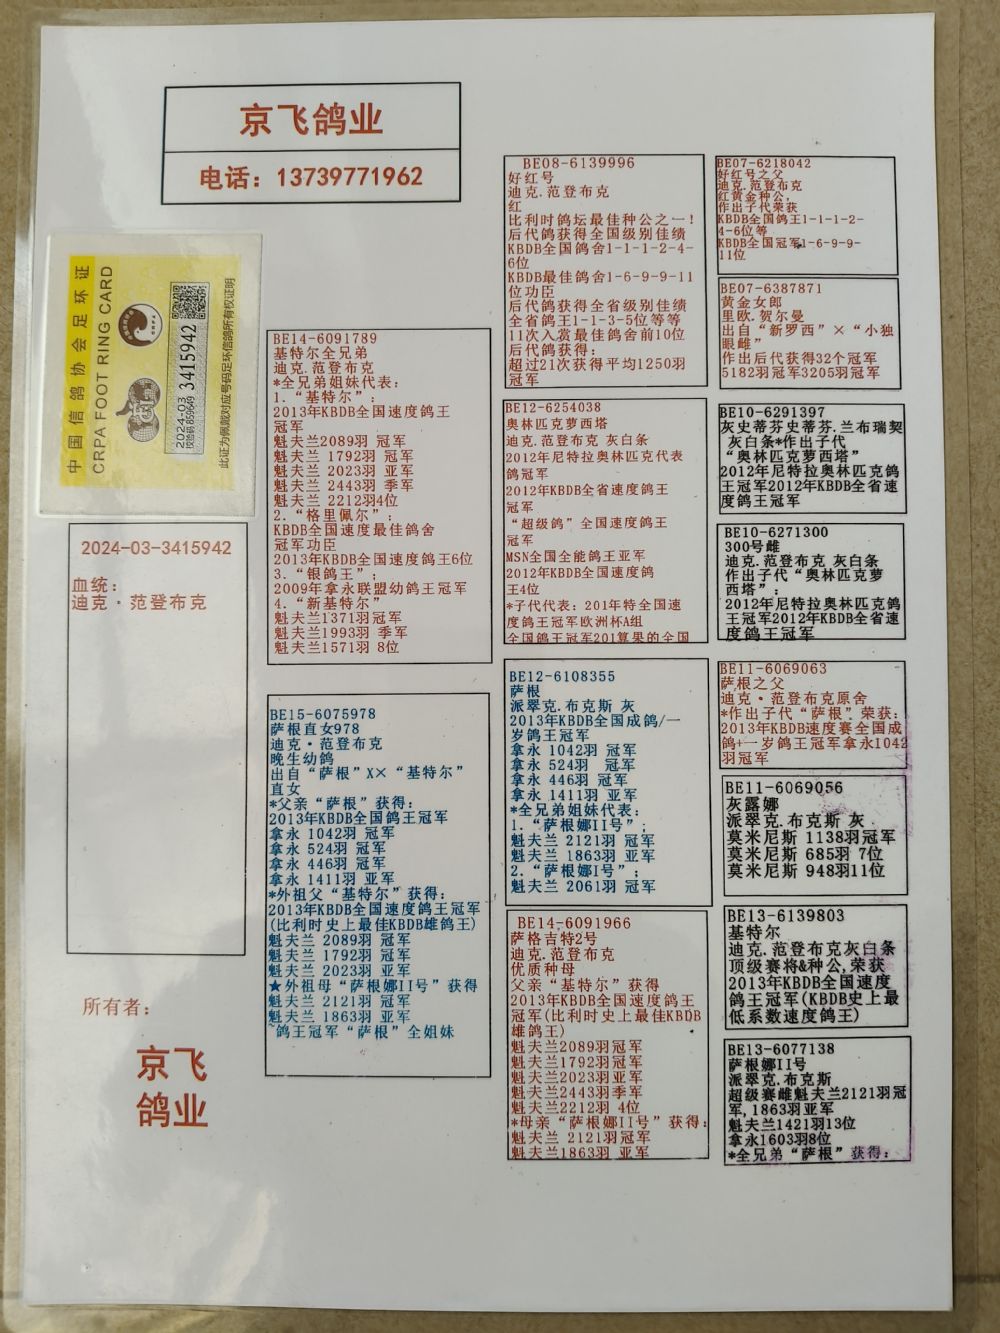 京飞鸽业
电话：13739771962
中国信鸽协会足环证
CRPA FOOT RING CARD
2024-03 3415942
校验码 859649
此证为佩戴对应号码足环信鸽所有权证明
2024-03-3415942
血统：
迪克·范登布克
所有者：
京飞
鸽业
BE14-6091789
基特尔全兄弟
迪克.范登布克
*全兄弟姐妹代表：
1.“基特尔”；
2013年KBDB全国速度鸽王
冠军
魁夫兰2089羽 冠军
魁夫兰 1792羽 冠军
魁夫兰 2023羽 亚军
魁夫兰 2443羽 季军
魁夫兰 2212羽4位
2.“格里佩尔”；
KBDB全国速度最佳鸽舍
冠军功臣
2013年KBDB全国速度鸽王6位
3.“银鸽王”；
2009年拿永联盟幼鸽王冠军
4.“新基特尔”
魁夫兰1371羽冠军
魁夫兰1993羽 季军
魁夫兰1571羽 8位
BE15-6075978
萨根直女978
迪克·范登布克
晚生幼鸽
出自“萨根”X×“基特尔”
直女
*父亲“萨根”获得：
2013年KBDB全国鸽王冠军
拿永 1042羽 冠军
拿永 524羽 冠军
拿永 446羽 冠军
拿永 1411羽 亚军
*外祖父“基特尔”获得：
2013年KBDB全国速度鸽王冠军
(比利时史上最佳KBDB雄鸽王)
魁夫兰 2089羽 冠军
魁夫兰 1792羽 冠军
魁夫兰 2023羽 亚军
★外祖母“萨根娜II号”获得
魁夫兰 2121羽 冠军
魁夫兰 1863羽 亚军
~鸽王冠军“萨根”全姐妹
BE08-6139996
好红号
迪克.范登布克
红
比利时鸽坛最佳种公之一！
后代鸽获得全国级别佳绩
KBDB全国鸽舍1-1-1-2-4-
6位
KBDB最佳鸽舍1-6-9-9-11
位功臣
后代鸽获得全省级别佳绩
全省鸽王1-1-3-5位等等
11次入赏最佳鸽舍前10位
后代鸽获得：
超过21次获得平均1250羽
冠军
BE12-6254038
奥林匹克萝西塔
迪克.范登布克 灰白条
2012年尼特拉奥林匹克代表
鸽冠军
2012年KBDB全省速度鸽王
冠军
“超级鸽”全国速度鸽王
冠军
MSN全国全能鸽王亚军
2012年KBDB全国速度鸽
王4位
*子代代表：201年特全国速
度鸽王冠军欧洲杯A组
全国鸽王冠军201算果的全国
BE12-6108355
萨根
派翠克.布克斯 灰
2013年KBDB全国成鸽/一
岁鸽王冠军
拿永 1042羽 冠军
拿永 524羽 冠军
拿永 446羽 冠军
拿永 1411羽 亚军
*全兄弟姐妹代表：
1.“萨根娜II号”；
魁夫兰 2121羽 冠军
魁夫兰 1863羽 亚军
2.“萨根娜I号”；
魁夫兰 2061羽 冠军
BE14-6091966
萨格吉特2号
迪克.范登布克
优质种母
父亲“基特尔”获得
2013年KBDB全国速度鸽王
冠军(比利时史上最佳KBDB
雄鸽王)
魁夫兰2089羽冠军
魁夫兰1792羽冠军
魁夫兰2023羽亚军
魁夫兰2443羽季军
魁夫兰2212羽 4位
*母亲“萨根娜II号”获得：
魁夫兰 2121羽冠军
魁夫兰1863羽 亚军
BE07-6218042
好红号之父
迪克.范登布克
红黄金种公,
作出子代荣获
KBDB全国鸽王1-1-1-2-
4-6位等
KBDB全国冠军1-6-9-9-
11位
BE07-6387871
黄金女郎
里欧.贺尔曼
出自“新罗西”×“小独
眼雌”
作出后代获得32个冠军
5182羽冠军3205羽冠军
BE10-6291397
灰史蒂芬史蒂芬.兰布瑞契
灰白条*作出子代
“奥林匹克萝西塔”
2012年尼特拉奥林匹克鸽
王冠军2012年KBDB全省速
度鸽王冠军
BE10-6271300
300号雌
迪克.范登布克 灰白条
作出子代“奥林匹克萝
西塔”；
2012年尼特拉奥林匹克鸽
王冠军2012年KBDB全省速
度鸽王冠军
BE11-6069063
萨根之父
迪克·范登布克原舍
*作出子代“萨根”荣获：
2013年KBDB速度赛全国成
鸽+一岁鸽王冠军拿永1042
羽冠军
BE11-6069056
灰露娜
派翠克.布克斯 灰
莫米尼斯 1138羽冠军
莫米尼斯 685羽 7位
莫米尼斯 948羽11位
BE13-6139803
基特尔
迪克.范登布克灰白条
顶级赛将&种公,荣获
2013年KBDB全国速度
鸽王冠军(KBDB史上最
低系数速度鸽王)
BE13-6077138
萨根娜II号
派翠克.布克斯
超级赛雌魁夫兰2121羽冠
军,1863羽亚军
魁夫兰1421羽13位
拿永1603羽8位
*全兄弟“萨根”获得：